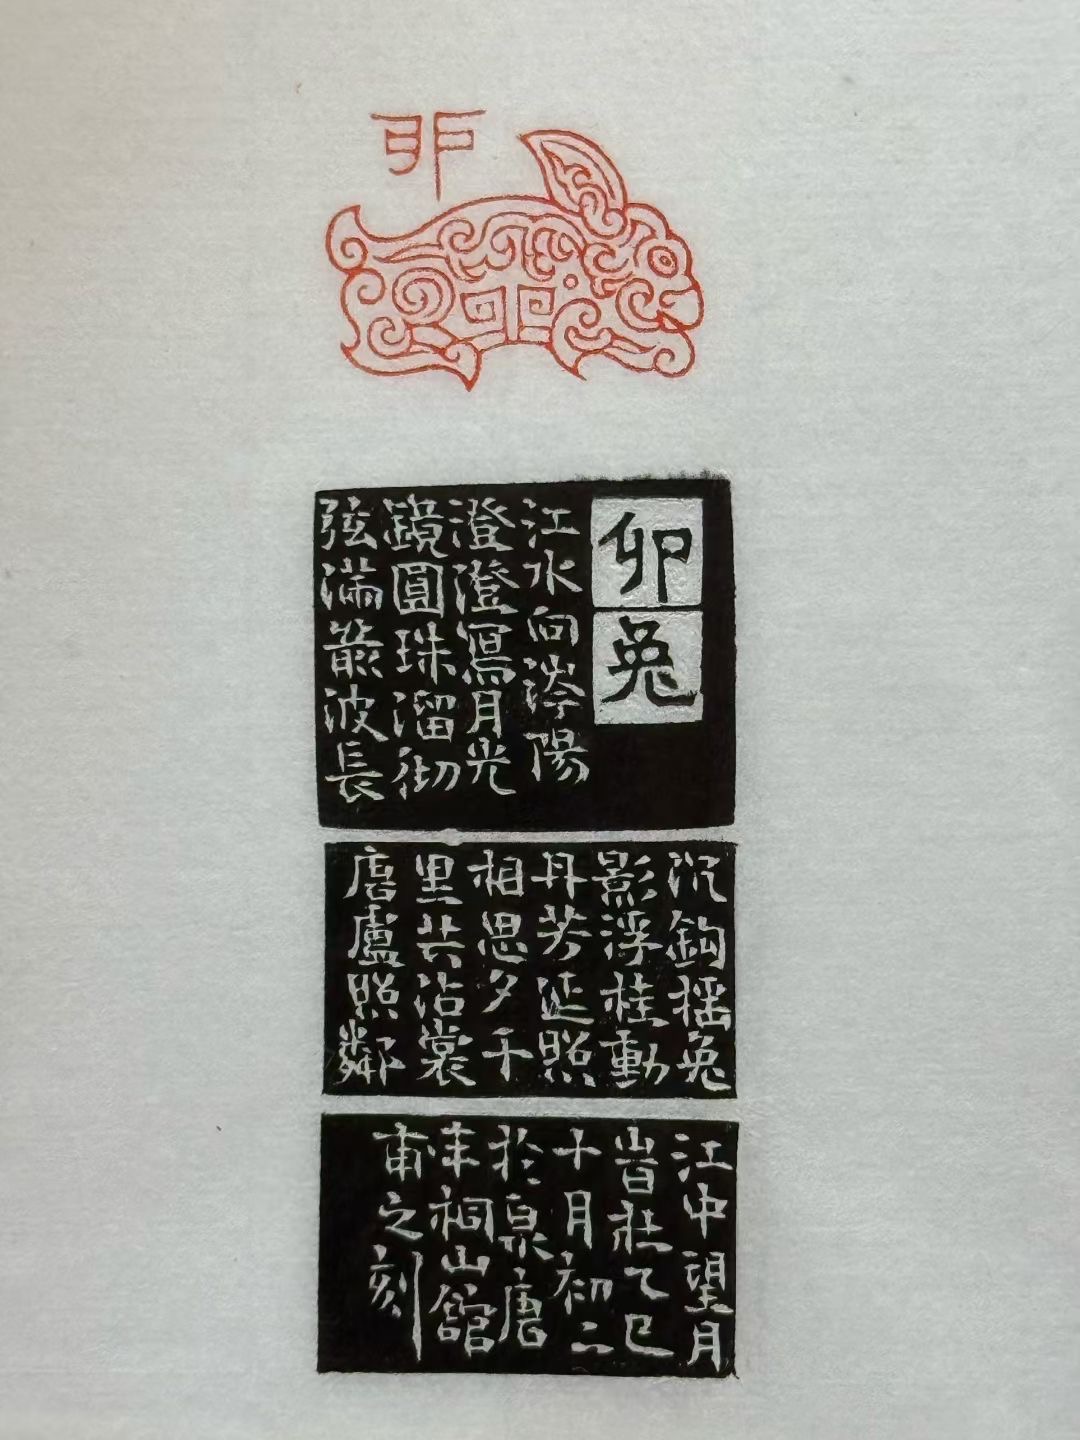 卯
卯兔
江水向涔陽
澄澄寫月光
鏡圓珠溜彻
弦滿箭波長
沉鈎摇兔
影浮桂動
丹芳延照
相思夕千
里共沾裳
唐盧照鄰
江中望月
旹在乙巳
十月初二
於泉唐
祠山館
甫之刻